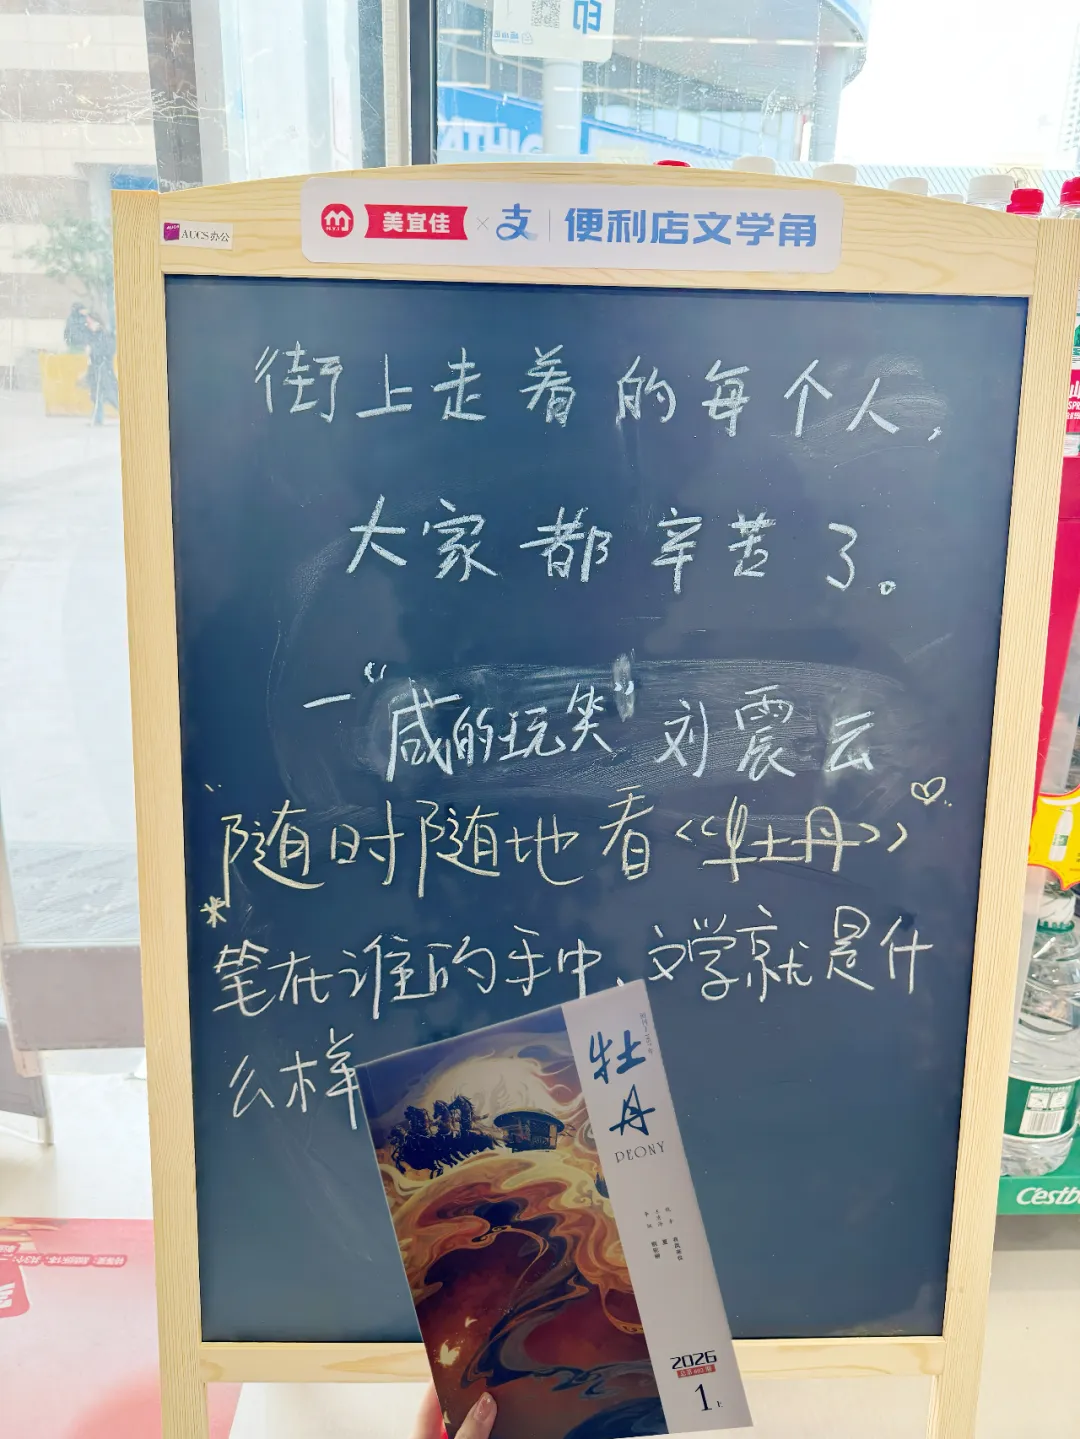 印
AUCS办公
美宜佳 × 支 | 便利店文学角
街上走着的每个人,
大家都辛苦了。
—“咸的玩笑”刘震云
随时随地看<<牡丹>>
笔在谁的手中、文学就是什
么样
牡丹
PEONY
2026
1上
Cestb